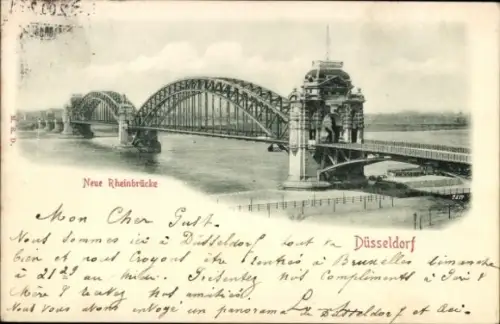 Neue Rheinbrücke
Düsseldorf
Mon Cher Gust.
Nous sommes ici à Düsseldorf tout va
bien et nous croyons être rentrés à Bruxelles dimanche
à 2123 au Presentez nos compliments à
Mère & recevez nos amitiés.
Nous vous avons envoyé un panorama de Düsseldorf et